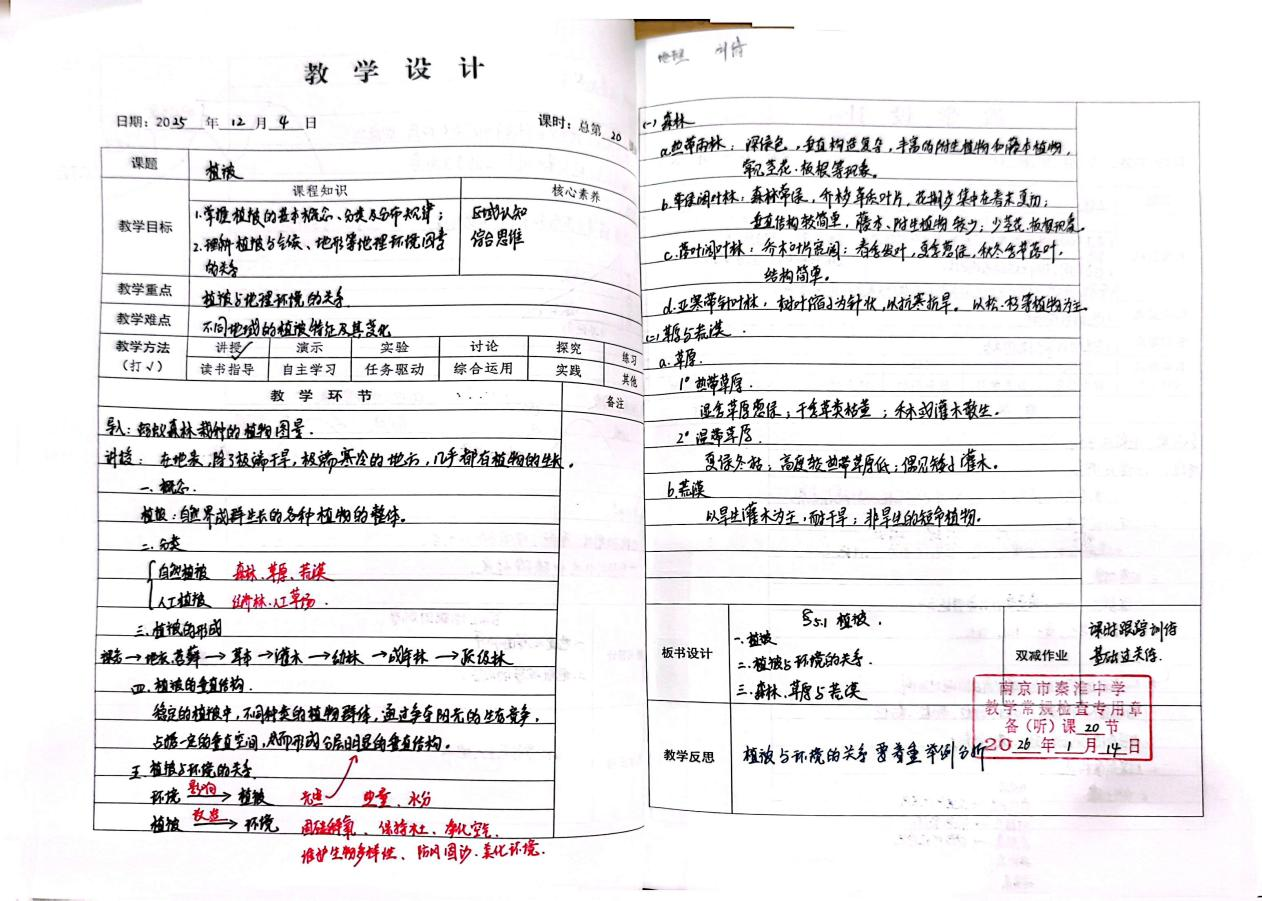 教学设计
日期:2025 年 12 月 4 日
课时:总第 20
课题 植被
教学目标
课程知识
核心素养
1.掌握植被的基本概念、分类及分布规律;
2.理解植被与气候、地形等地理环境因素
的关系
区域认知
综合思维
教学重点 植被与地理环境的关系
教学难点 不同地域的植被特征及其变化
教学方法
(打√)
讲授√ 演示 实验 讨论 探究 练习
读书指导 自主学习 任务驱动 综合运用 实践 其他
教学环节
备注
导入:蚂蚁森林栽种的植物图景.
讲授: 在地表,除了极端干旱,极端寒冷的地方,几乎都有植物的生长。
一.概念.
植被:自然界成群生长的各种植物的整体。
二.分类
自然植被 森林、草原、荒漠
人工植被 经济林、人工草场.
三.植被的形成
裸岩→地衣、苔藓→草本→灌木→幼林→成年林→顶级林
四.植被的垂直结构.
稳定的植被中,不同种类的植物群体,通过争夺阳光的生存竞争,
占据一定的垂直空间,从而形成分层明显的垂直结构。
五.植被与环境的关系
环境 影响→ 植被 光照 热量、水分
植被 改造→ 环境 固碳释氧、保持水土、净化空气、
维护生物多样性、防风固沙.美化环境.
地理
(一)森林
a.热带雨林:深绿色,垂直构造复杂,丰富的附生植物和藤本植物,
常见茎花、板根等现象。
b.常绿阔叶林:森林常绿,乔木多革质叶片,花期多集中在春末夏初;
垂直结构较简单,藤本、附生植物较少;少茎花、板根现象。
c.落叶阔叶林:乔木叶片宽阔;春季发叶,夏季葱绿,秋冬季节落叶,
结构简单。
d.亚寒带针叶林:树叶缩小为针状,以抗寒抗旱。以松、杉等植物为主。
(二)草原与荒漠.
a.草原.
1°热带草原.
湿季草原葱绿;干季草类枯黄;乔木或灌木散生。
2°温带草原.
夏绿冬枯;高度较热带草原低;偶见矮小灌木。
b.荒漠
以旱生灌木为主,耐干旱;非旱生的短命植物。
板书设计
§5.1 植被.
一.植被
二.植被与环境的关系.
三.森林、草原与荒漠
双减作业
课时跟踪训练
基础过关练.
教学反思
植被与环境的关系要着重举例分析
南京市秦淮中学
教学常规检查专用章
备(听)课 20 节
2026 年 1 月 14 日